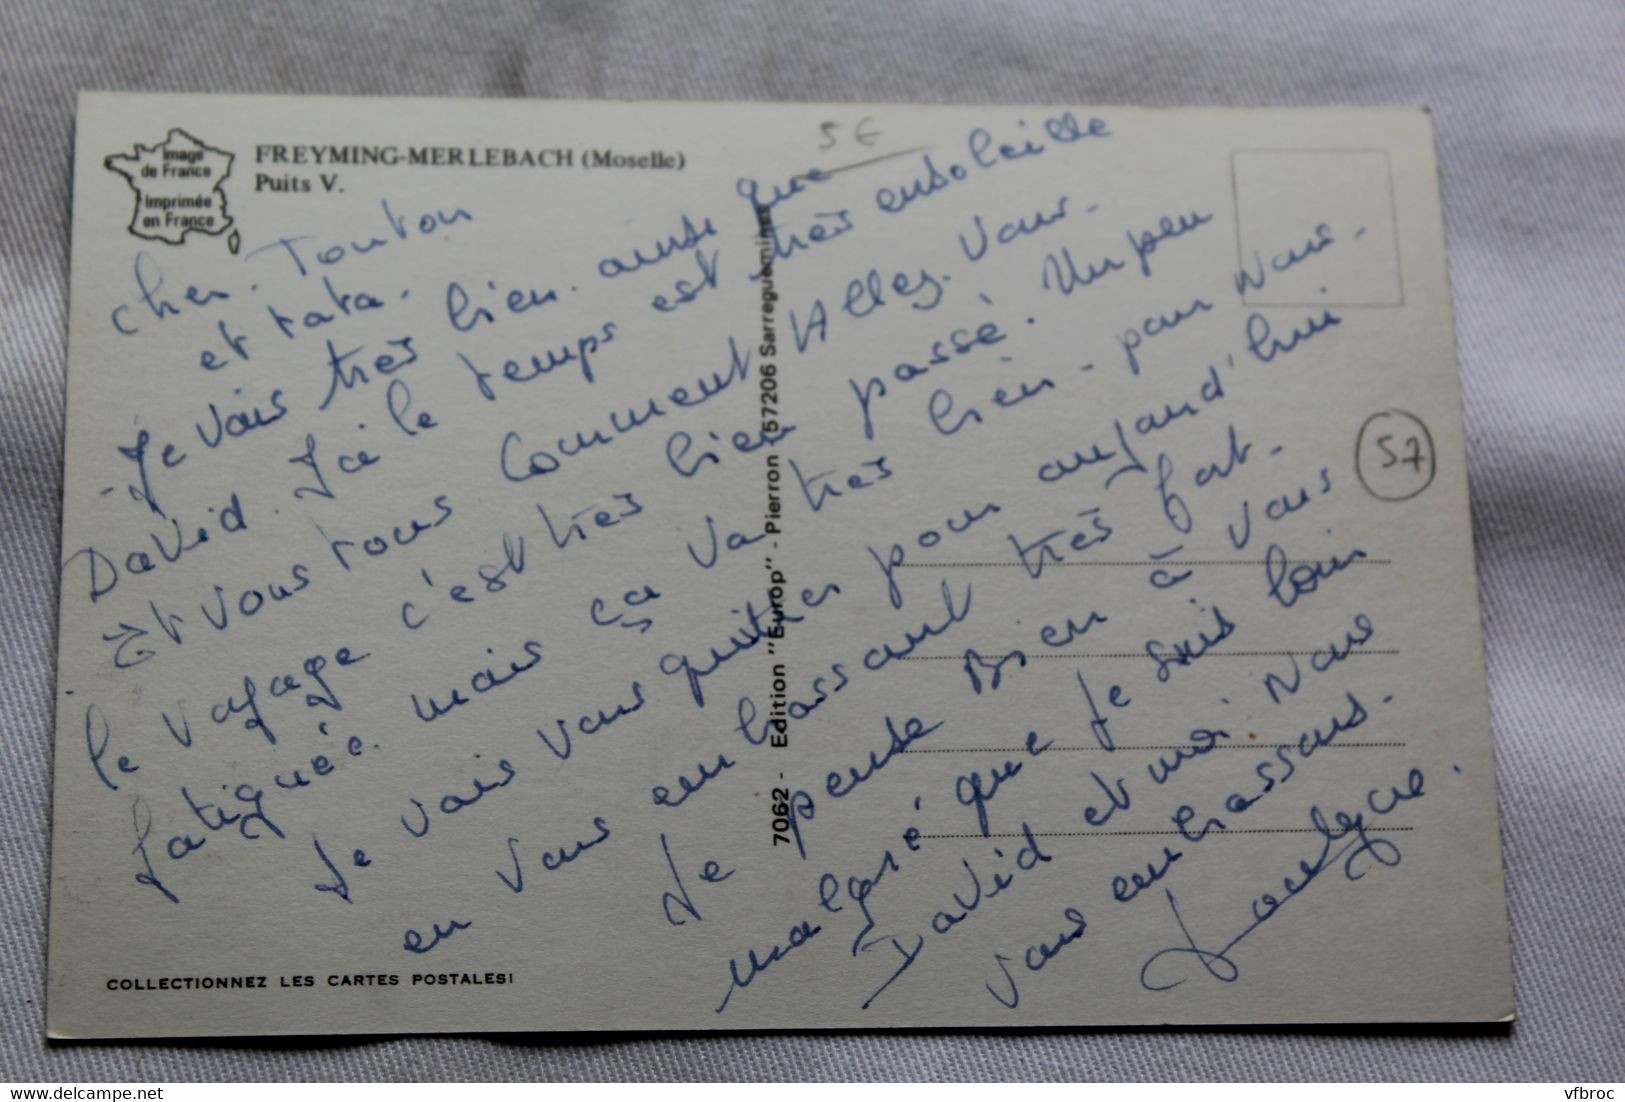 Image
de France
Imprimée
en France
FREYMING-MERLEBACH (Moselle)
Puits V.
5 €
Cher. Tonton
et tata.
- Je vais très bien. ainsi que
David. J'ai le temps est très ensoleille
Et vous tous comment Allez. Vous.
le voyage c'est très bien passé. Un peu
fatiguée. mais ça va très bien - pour nous.
Je vais vous quitter pour aujourd'hui
en vous embrassant très fort.
Je pense Bien à vous
malgré que je suis loin
David et moi. Nous
vous embrassons.
Jocelyne.
57
7062 - Edition "Europ" - Pierron 57206 Sarreguemines
COLLECTIONNEZ LES CARTES POSTALES!
delcampe.net
vfbroc